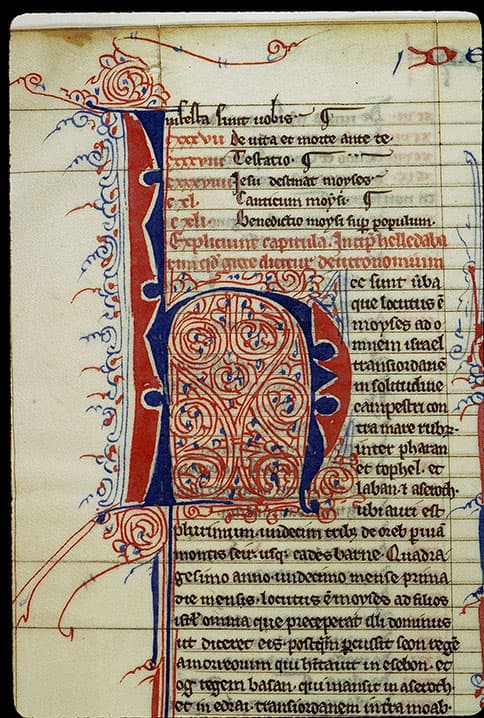 nifesta sunt uobis ¶
cxxxvii De uita et morte ante te.
cxxxviii Testatio. ¶
cxxxviiii Iesu destinat moyses
cxl. Canticum moysi. ¶
cxli. Benedictio moysi sup populum.
Expliciunt capitula. Incipit helledaba
rim qd grece dicitur deutronomium
Hec sunt ūba
que locutus ē
moyses ad o
mnem israel
transiordanē
in solitudine
campestri con
tra mare rubr.
inter pharan
et tophel. et
laban & aseroch.
ubi auri est
plurimum. undecim dieb; de oreb p uiā
montis seir usq; cades barne. Quadra
gesimo anno. undecimo mense prima
die mensis. locutus ē moyses ad filios
isrl omnia que preceperat illi dominus
ut diceret eis. postqm pcussit seon regē
amorreorum qui hitauit in esebon. et
og regem basan. qui mansit in aseroth
et in edrai. transiordanem in tra moab.